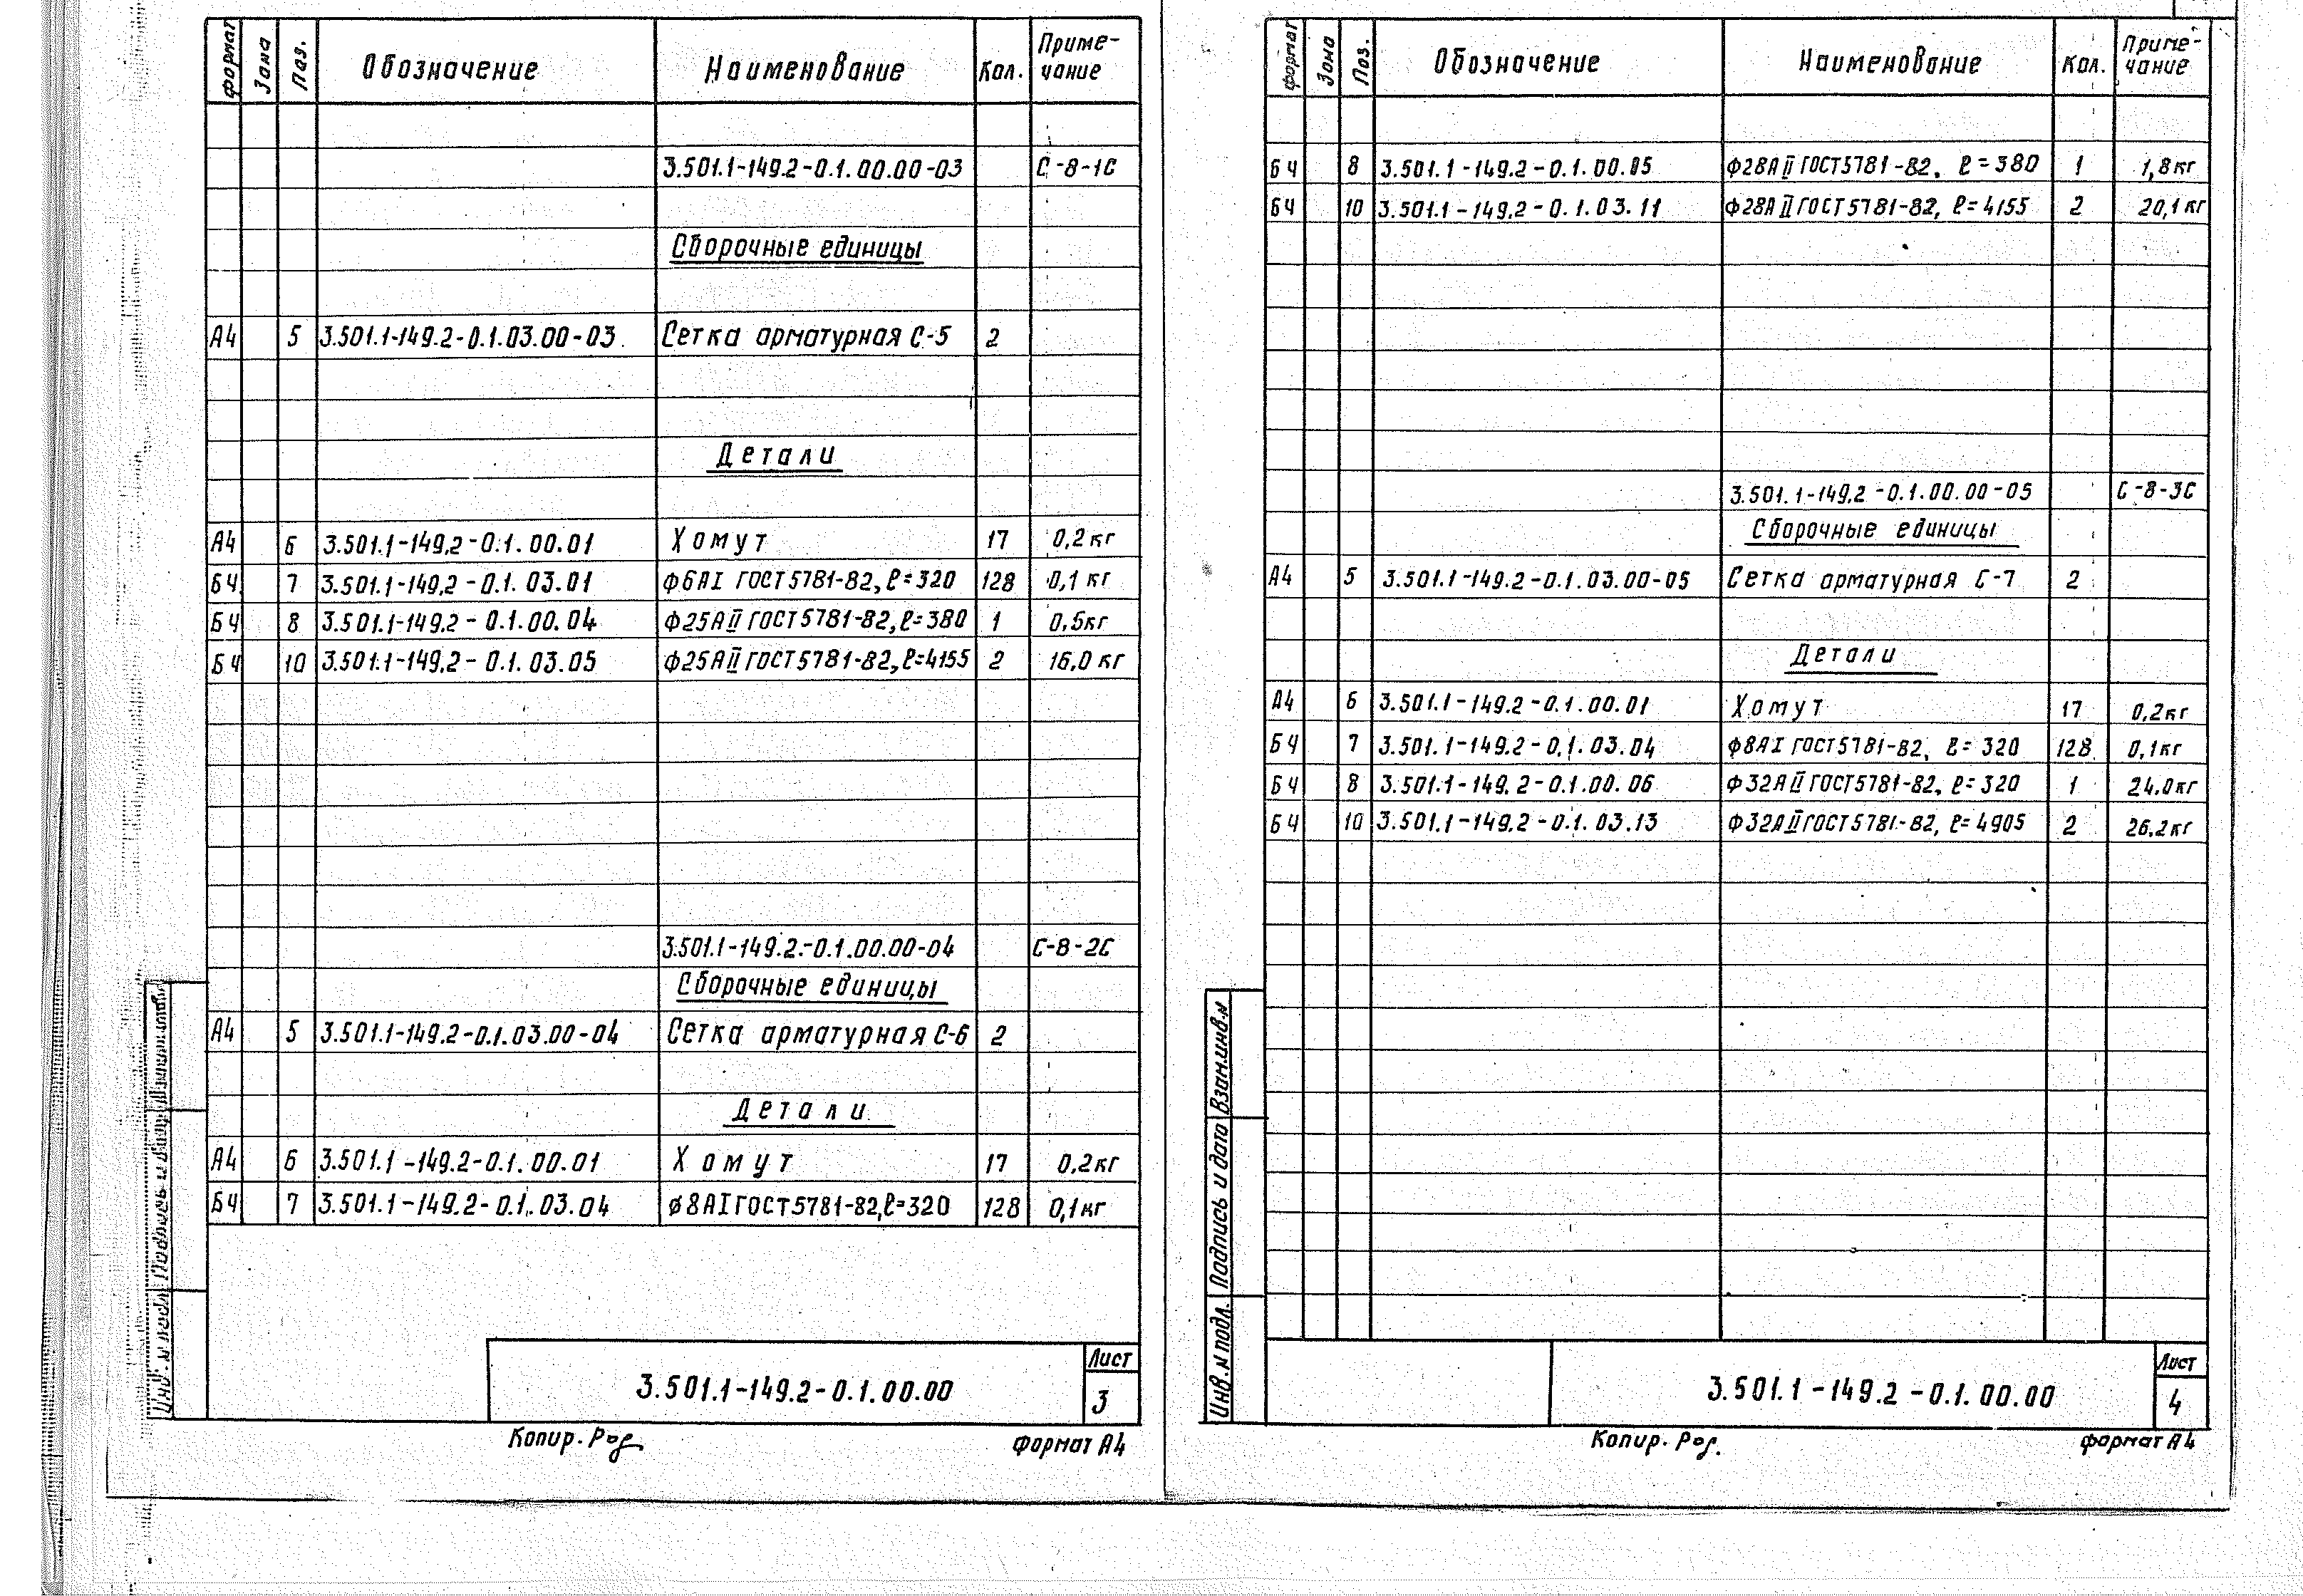 Формат Зона Поз. Обозначение Наименование Кол. Приме-
чание
3.501.1-149.2-0.1.00.00-03 С-8-1С
Сборочные единицы
А4 5 3.501.1-149.2-0.1.03.00-03 Сетка арматурная С-5 2
Детали
А4 6 3.501.1-149.2-0.1.00.01 Хомут 17 0,2кг
БЧ 7 3.501.1-149.2-0.1.03.01 Ф6АI ГОСТ5781-82, ℓ=320 128 0,1 кг
БЧ 8 3.501.1-149.2-0.1.00.04 Ф25АII ГОСТ5781-82, ℓ=380 1 0,5кг
БЧ 10 3.501.1-149.2-0.1.03.05 Ф25АII ГОСТ5781-82, ℓ=4155 2 16,0 кг
3.501.1-149.2-0.1.00.00-04 С-8-2С
Сборочные единицы
А4 5 3.501.1-149.2-0.1.03.00-04 Сетка арматурная С-6 2
Детали
А4 6 3.501.1-149.2-0.1.00.01 Хомут 17 0,2кг
БЧ 7 3.501.1-149.2-0.1.03.04 ø8АI ГОСТ5781-82, ℓ=320 128 0,1кг
Инв. № подл. Подпись и дата
3.501.1-149.2-0.1.00.00 Лист
3
Копир. Роg Формат А4
Формат Зона Поз. Обозначение Наименование Кол. Приме-
чание
БЧ 8 3.501.1-149.2-0.1.00.05 Ф28АII ГОСТ5781-82, ℓ=380 1 1,8кг
БЧ 10 3.501.1-149.2-0.1.03.11 Ф28АII ГОСТ5781-82, ℓ=4155 2 20,1 кг
3.501.1-149.2-0.1.00.00-05 С-8-3С
Сборочные единицы
А4 5 3.501.1-149.2-0.1.03.00-05 Сетка арматурная С-7 2
Детали
А4 6 3.501.1-149.2-0.1.00.01 Хомут 17 0,2кг
БЧ 7 3.501.1-149.2-0.1.03.04 Ф8АI ГОСТ5781-82, ℓ=320 128 0,1кг
БЧ 8 3.501.1-149.2-0.1.00.06 Ф32АII ГОСТ5781-82, ℓ=320 1 24.0кг
БЧ 10 3.501.1-149.2-0.1.03.13 Ф32АII ГОСТ5781-82, ℓ=4905 2 26.2кг
Инв.№ подл. Подпись и дата Взам.инв.№
3.501.1-149.2-0.1.00.00 Лист
4
Копир. Роg. Формат А4